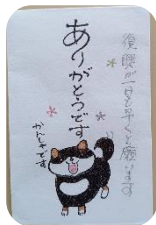 復興が一日も早くと願います
ありがとうです
かんしゃです